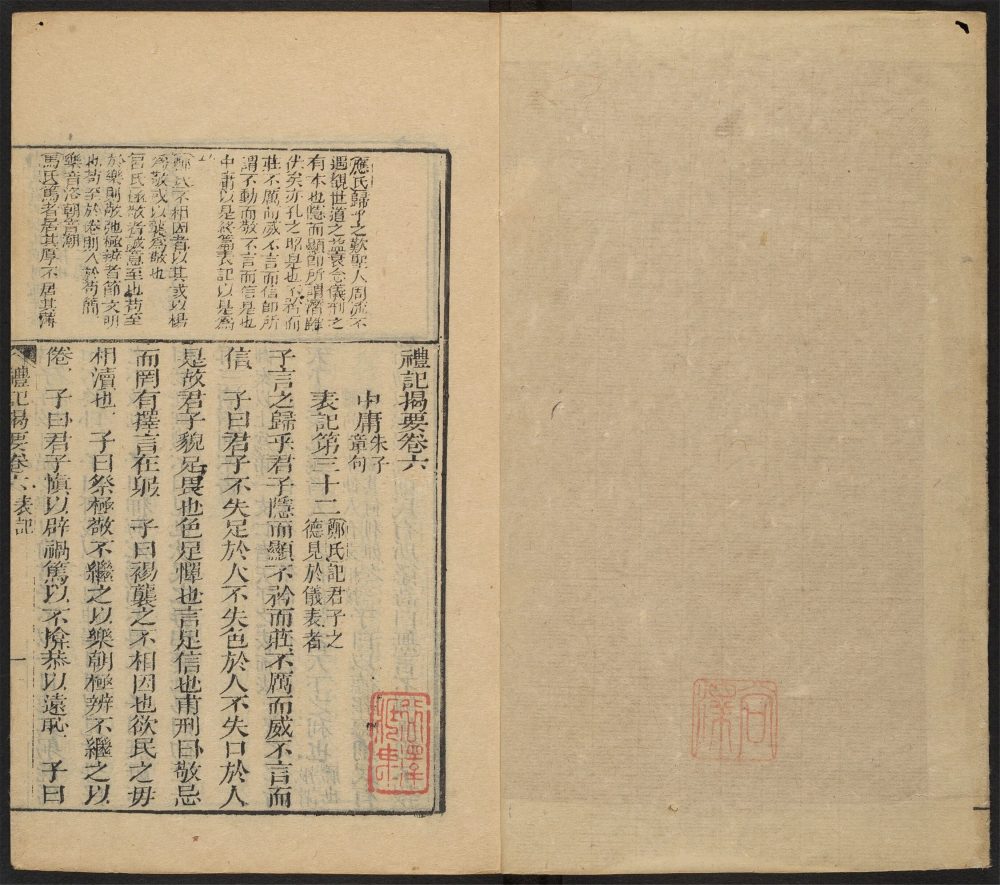 應氏歸乎之歎聖人周流不
遇觀世道之益衰念儀刑之
有本也隱而顯即所謂潛雖
伏矣亦孔之昭是也不矜而
莊不厲而威不言而信即所
謂不動而敬不言而信是也
中庸以是終篇表記以是爲
鄭氏不相因者以其或以裼
爲敬或以襲爲敬也
呂氏極敬者誠意至也苟至
於樂則敬弛極辨者節文明
也苟至於倦則入於苟簡
樂音洛朝音潮
馬氏篤者居其厚不居其薄
禮記揭要卷六
中庸朱子章句
表記第三十二鄭氏記君子之德見於儀表者
子言之歸乎君子隱而顯不矜而莊不厲而威不言而
信 子曰君子不失足於人不失色於人不失口於人
是故君子貌足畏也色足憚也言足信也甫刑曰敬忌
而罔有擇言在躬 子曰裼襲之不相因也欲民之毋
相瀆也 子曰祭極敬不繼之以樂朝極辨不繼之以
倦 子曰君子愼以辟禍篤以不揜恭以遠恥 子曰
禮記揭要卷六 表記 一